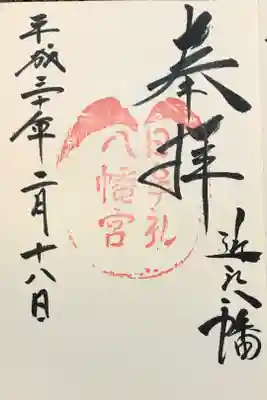 奉拝
近江八幡
日牟礼
八幡宮
平成三十年二月十八日